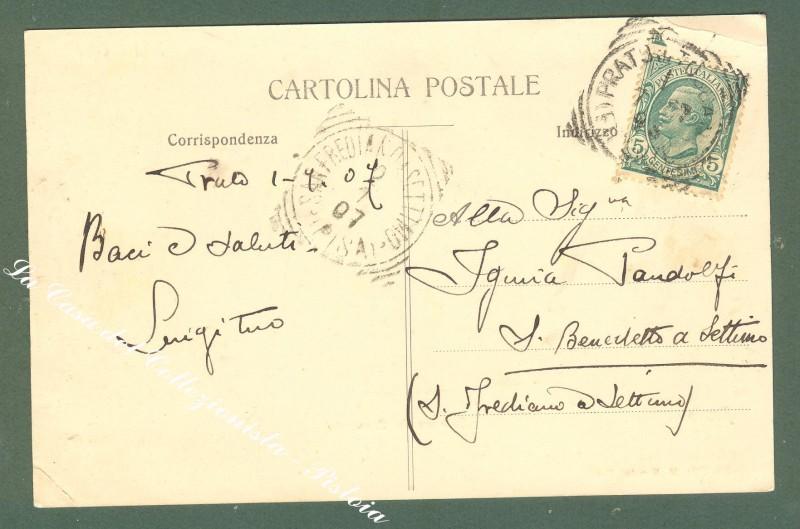 CARTOLINA POSTALE
Corrispondenza
Indirizzo
Prato 1-7.07
Baci e saluti
Luigi tuo
Alla Sigᵛᵃ
Pandolfi
S. Benedetto a Settimo
(S. Frediano a Settimo)
POSTE ITALIANE
5 5
PRATO
S. FREDIANO A SETTIMO
2
7
07
(PISA)
La Casa del Collezionista - Pistoia